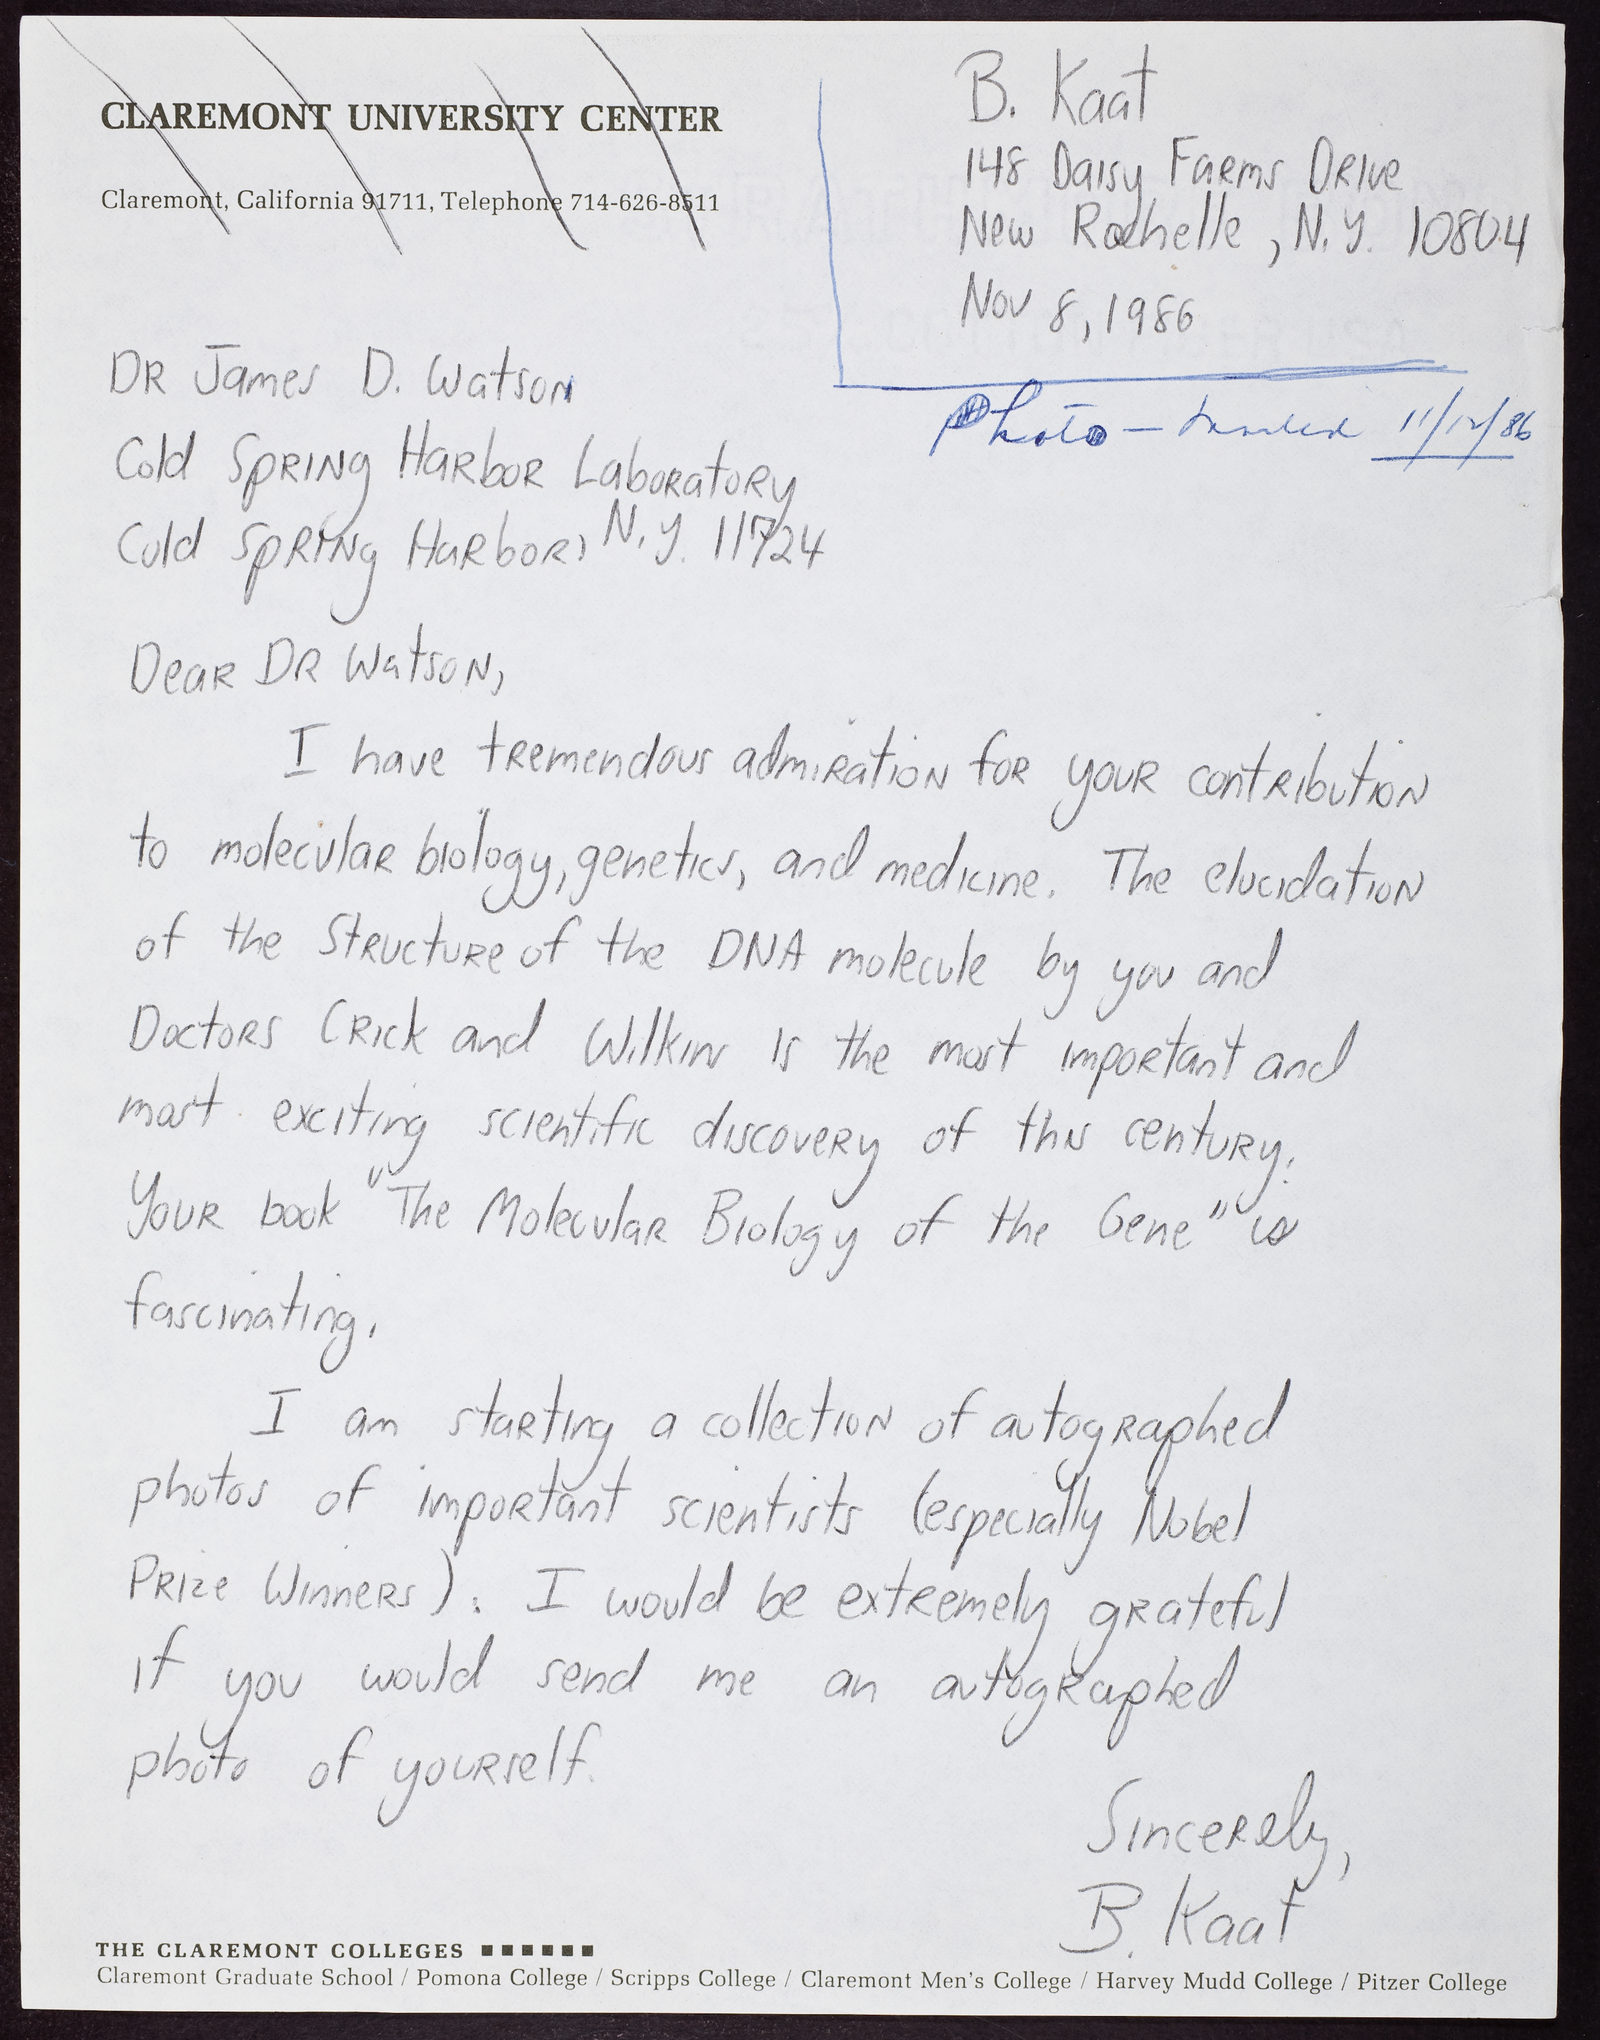 CLAREMONT UNIVERSITY CENTER
Claremont, California 91711, Telephone 714-626-8511
B. Kaat
148 Daisy Farms Drive
New Rochelle, N.Y. 10804
Nov 8, 1986
Photo — 11/12/86
DR James D. Watson
Cold Spring Harbor Laboratory
Cold Spring Harbor, N.Y. 11724
Dear DR Watson,
I have tremendous admiration for your contribution
to molecular biology, genetics, and medicine. The elucidation
of the structure of the DNA molecule by you and
Doctors Crick and Wilkins is the most important and
most exciting scientific discovery of this century.
Your book "The Molecular Biology of the Gene" is
fascinating.
I am starting a collection of autographed
photos of important scientists (especially Nobel
Prize Winners). I would be extremely grateful
if you would send me an autographed
photo of yourself.
Sincerely,
B. Kaat
THE CLAREMONT COLLEGES
Claremont Graduate School / Pomona College / Scripps College / Claremont Men's College / Harvey Mudd College / Pitzer College